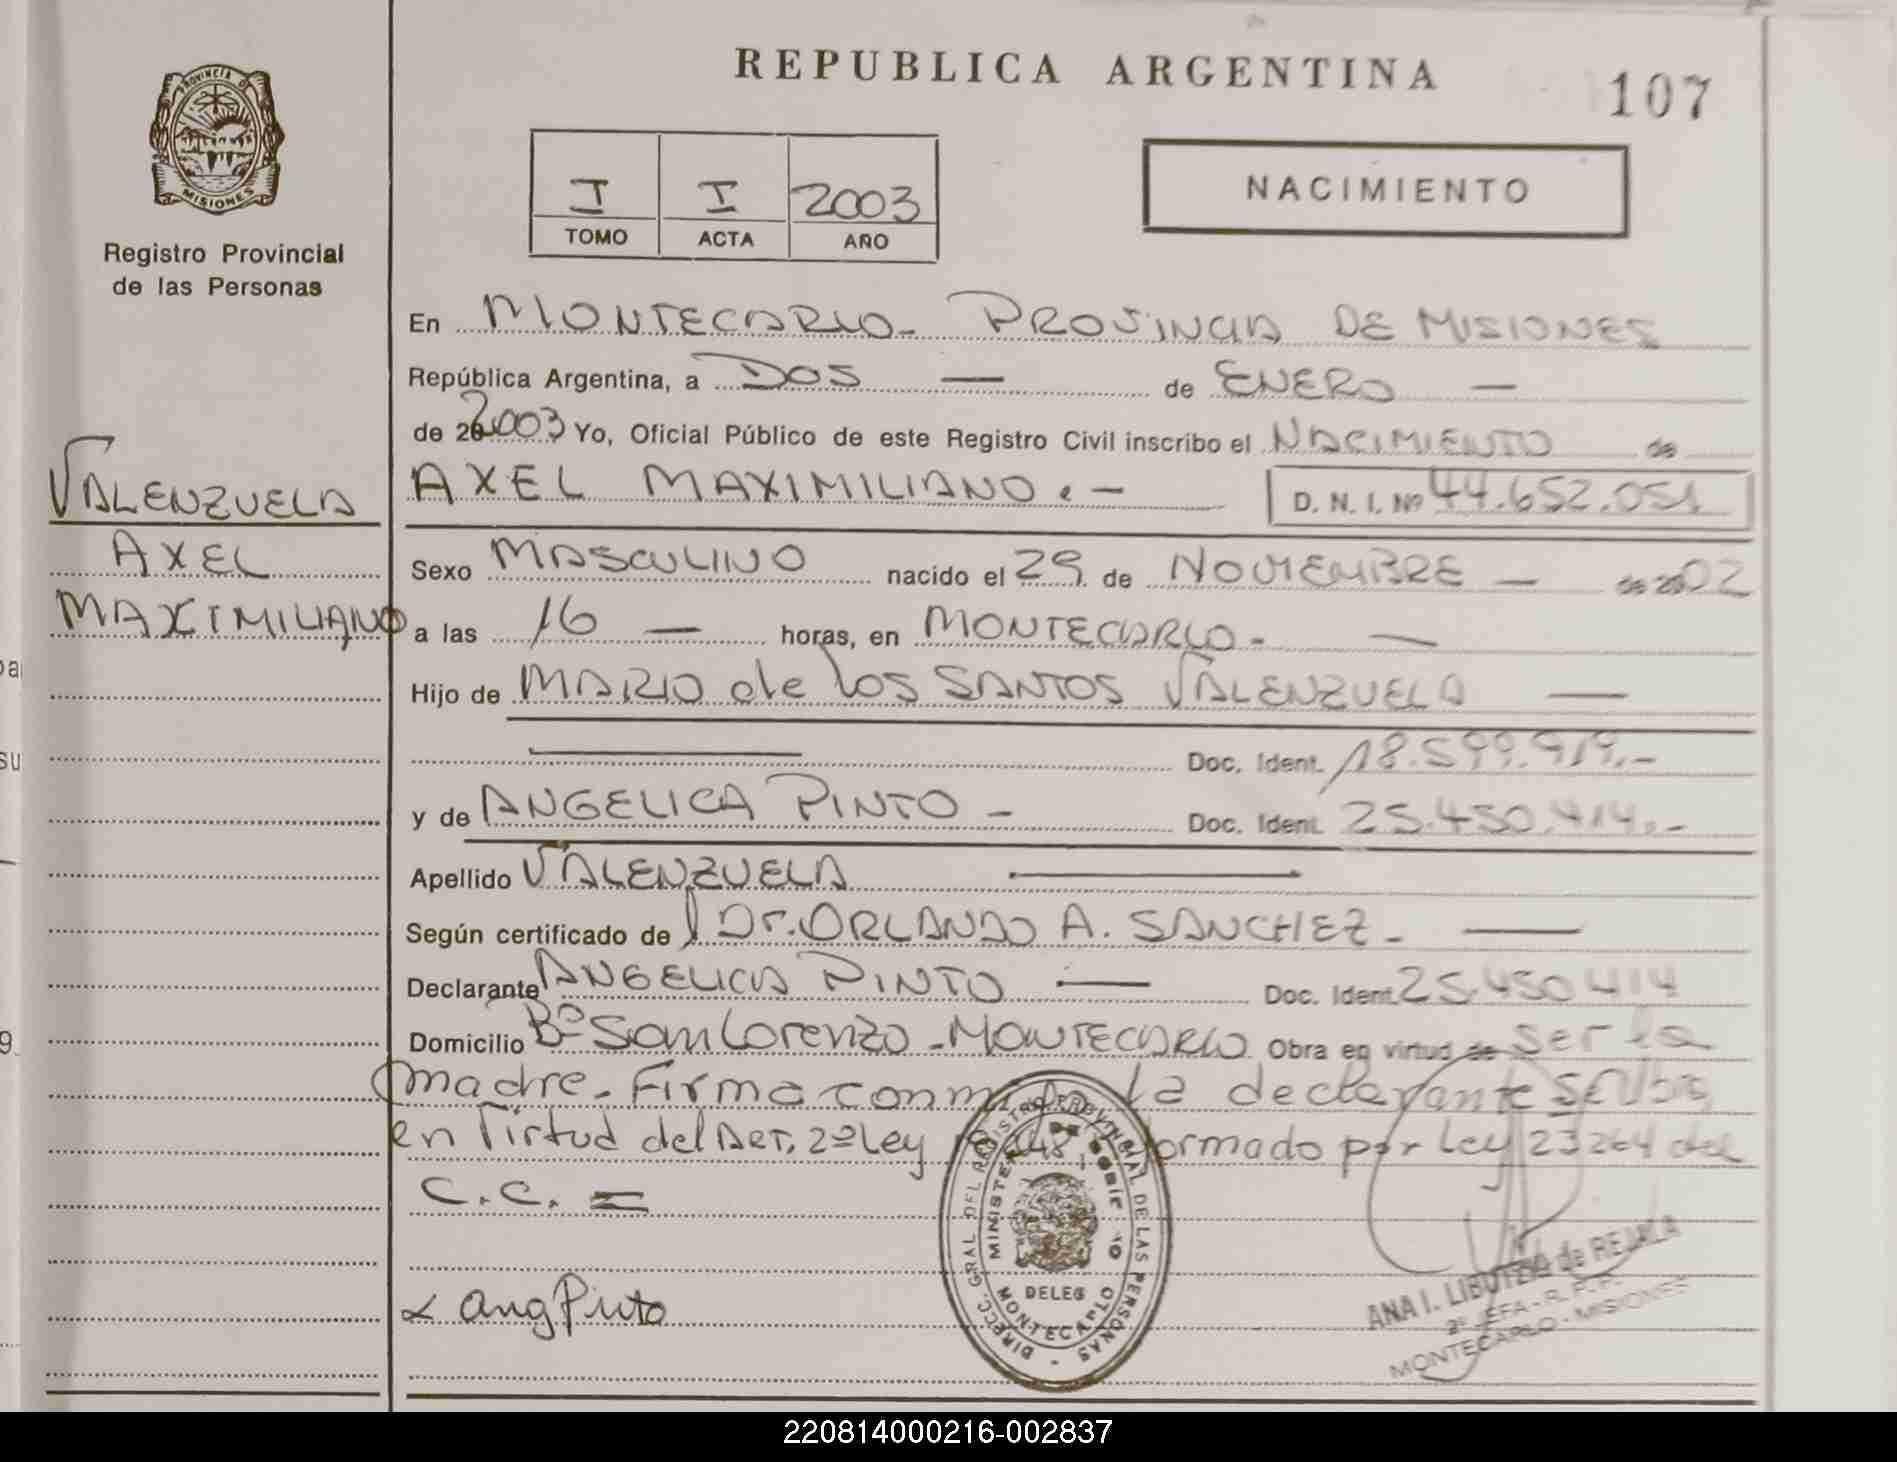 REPUBLICA ARGENTINA
107
PROVINCIA DE
MISIONES
Registro Provincial
de las Personas
I I 2003
TOMO ACTA AÑO
NACIMIENTO
En MONTECARLO - PROVINCIA DE MISIONES
República Argentina, a DOS — de ENERO —
de 20 2003 Yo, Oficial Público de este Registro Civil inscribo el NACIMIENTO de
VALENZUELA
AXEL
MAXIMILIANO
AXEL MAXIMILIANO . — D. N. I. Nº 44.652.051
Sexo MASCULINO nacido el 29 de NOVIEMBRE — de 2002
a las 16 — horas, en MONTECARLO - —
Hijo de MARIO de los SANTOS VALENZUELA —
Doc. Ident. 18.599.919.-
y de ANGELICA PINTO - Doc. Ident. 25.450.414.-
Apellido VALENZUELA
Según certificado de Dr. ORLANDO A. SANCHEZ - —
Declarante ANGELICA PINTO — Doc. Ident. 25.450414
Domicilio Bº San Lorenzo - MONTECARLO Obra en virtud de ser la
madre - Firma conmigo la declarante
en Virtud del Art. 2º Ley formado por Ley 23264 del
C.C. =
x angPinto
DIRECC. GRAL DEL REGISTRO PROVINCIAL DE LAS PERSONAS
DELEG
MONTECARLO
ANA I. de REJALA
2º JEFA - R. P. P.
MONTECARLO - MISIONES
220814000216-002837